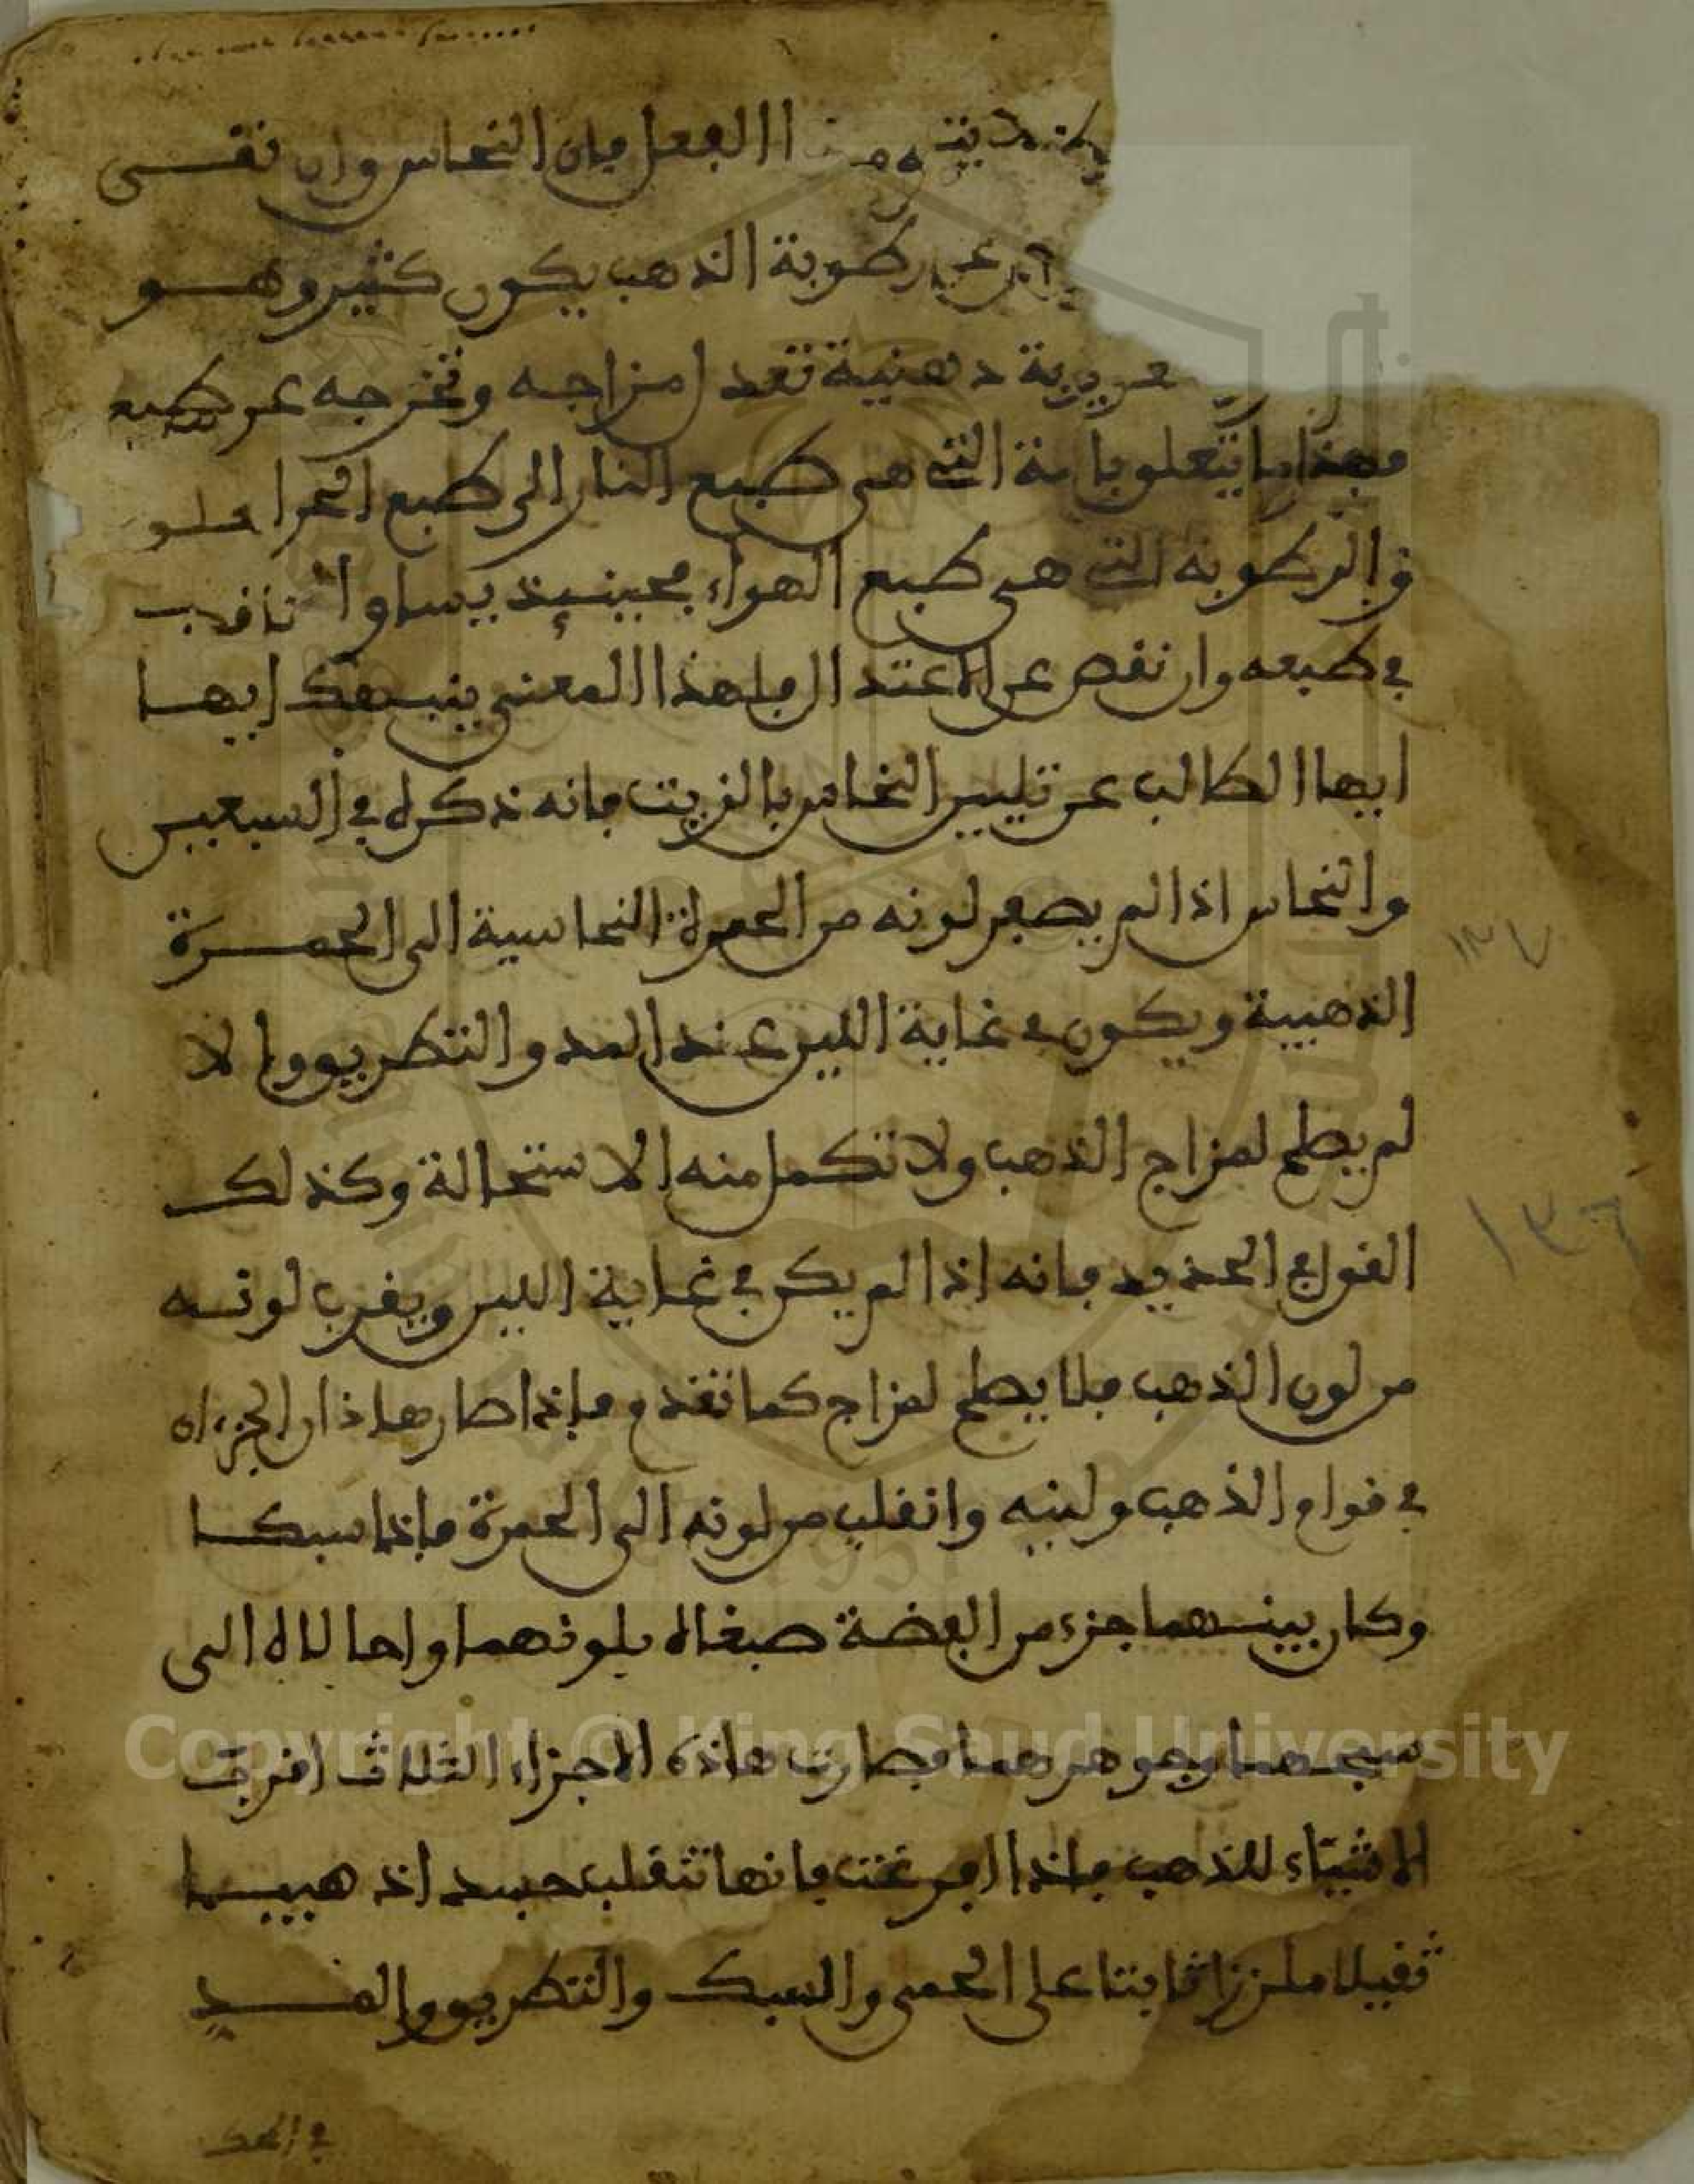 الفعل فإن النحاس وإن نقى
عن رطوبة الذهب يكون كثير وهو
دهنية تعد امزاجه وتخرجه عن طبع
التي هي طبع النار الى طبع
والرطوبة التي هي طبع الهواء فحينيذ يساوا
في طبعه وان نقص عن الاعتدال فلهذا المعنى ينبهك ايها
ايها الطالب عن تليين النحاس بالزيت فانه ذكره في السبعين
والنحاس اذا لم يصفر لونه من الحمرة النحاسية الى الحمرة
الذهبية ويكون في غاية اللين عند المد والتطريق والا
لم يصلح لمزاج الذهب ولا تكمل منه الاستحالة وكذلك
القول في الحديد فانه اذا لم يكن في غاية اللين ويقرب لونه
من لون الذهب فلا يصلح لمزاج كما تقدم فاذا صار هاذان الجزءان
في قوام الذهب ولينه وانقلب من لونه الى الحمرة فاذا سبكا
وكان بينهما جزء من الفضة صبغاه بلونهما واحالاه الى
وجوهرهما فصارت هاذه الاجزاء الثلاث اقرب
الاشياء للذهب فاذا افرغت فانها تنقلب جسدا ذهبيا
ثقيلا ملززا ثابتا على الحمى والسبك والتطريق والمد
في الحك
١٣٧
١٣٦
Copyright © King Saud University